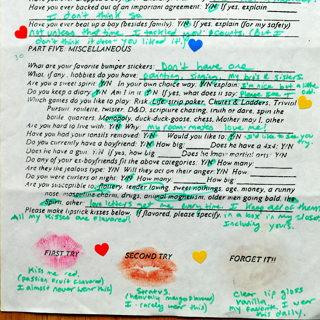 Have you ever backed out of an important agreement: Y/N If yes, explain
I don't think so
Have you ever beat up a boy (besides family): Y/N If yes, explain (for my safety)
not unless that time I tackled you counts. (but I
don't think it does- you liked it!)
PART FIVE: MISCELLANEOUS
What are your favorite bumper stickers: Don't have one
What if any, hobbies do you have: painting, singing, my bro's & sisters
Are you a street spirit Y/N In your own choice way Y/N explain: I'm nice but a little
Do you keep a diary Y/N Am I in it Y/N If yes, what does it say:
Which games do you like to play: Risk, Life, strip poker, Chutes & Ladders, Trivial
Pursuit, roulette, twister, D&D, scripture chasing, truth or dare, spin the
bottle, quarters, Monopoly, duck-duck-goose, chess, Mother may I, other
Are you hard to live with: Y/N Why: my room-mates love me!
Have you had your tonsils removed: Y/N Would you like to Y/N I'd like to see you try
Do you currently have a boyfriend: Y/N How big: Does he have a 4x4: Y/N
Does he have a gun: Y/N If yes, how big Does he have mortal
Do any of your ex-boyfriends fit the above categories: Y/N How many:
Are they the jealous type: Y/N Will they act on their anger: Y/N How
Do you wear curlers at night: Y/N How many: How big:
Are you susceptible to, flattery, tender loving, sweet nothings, age, money, a runny
nose, charm, drugs, animal magnetism, older men going bald, the
Spam, other: love letters get me every time. I keep all of them
Please make lipstick kisses below. If flavored, please specify. in a box in my closet
All my kisses are flavored. including yours.
FIRST TRY SECOND TRY FORGET IT!!
Kiss me red.
(passion fruit flavored)
I almost never wear this)
(heavenly mango flavored)
I rarely wear this)
Clear lip gloss
vanilla
my favorite, I wear
this daily.